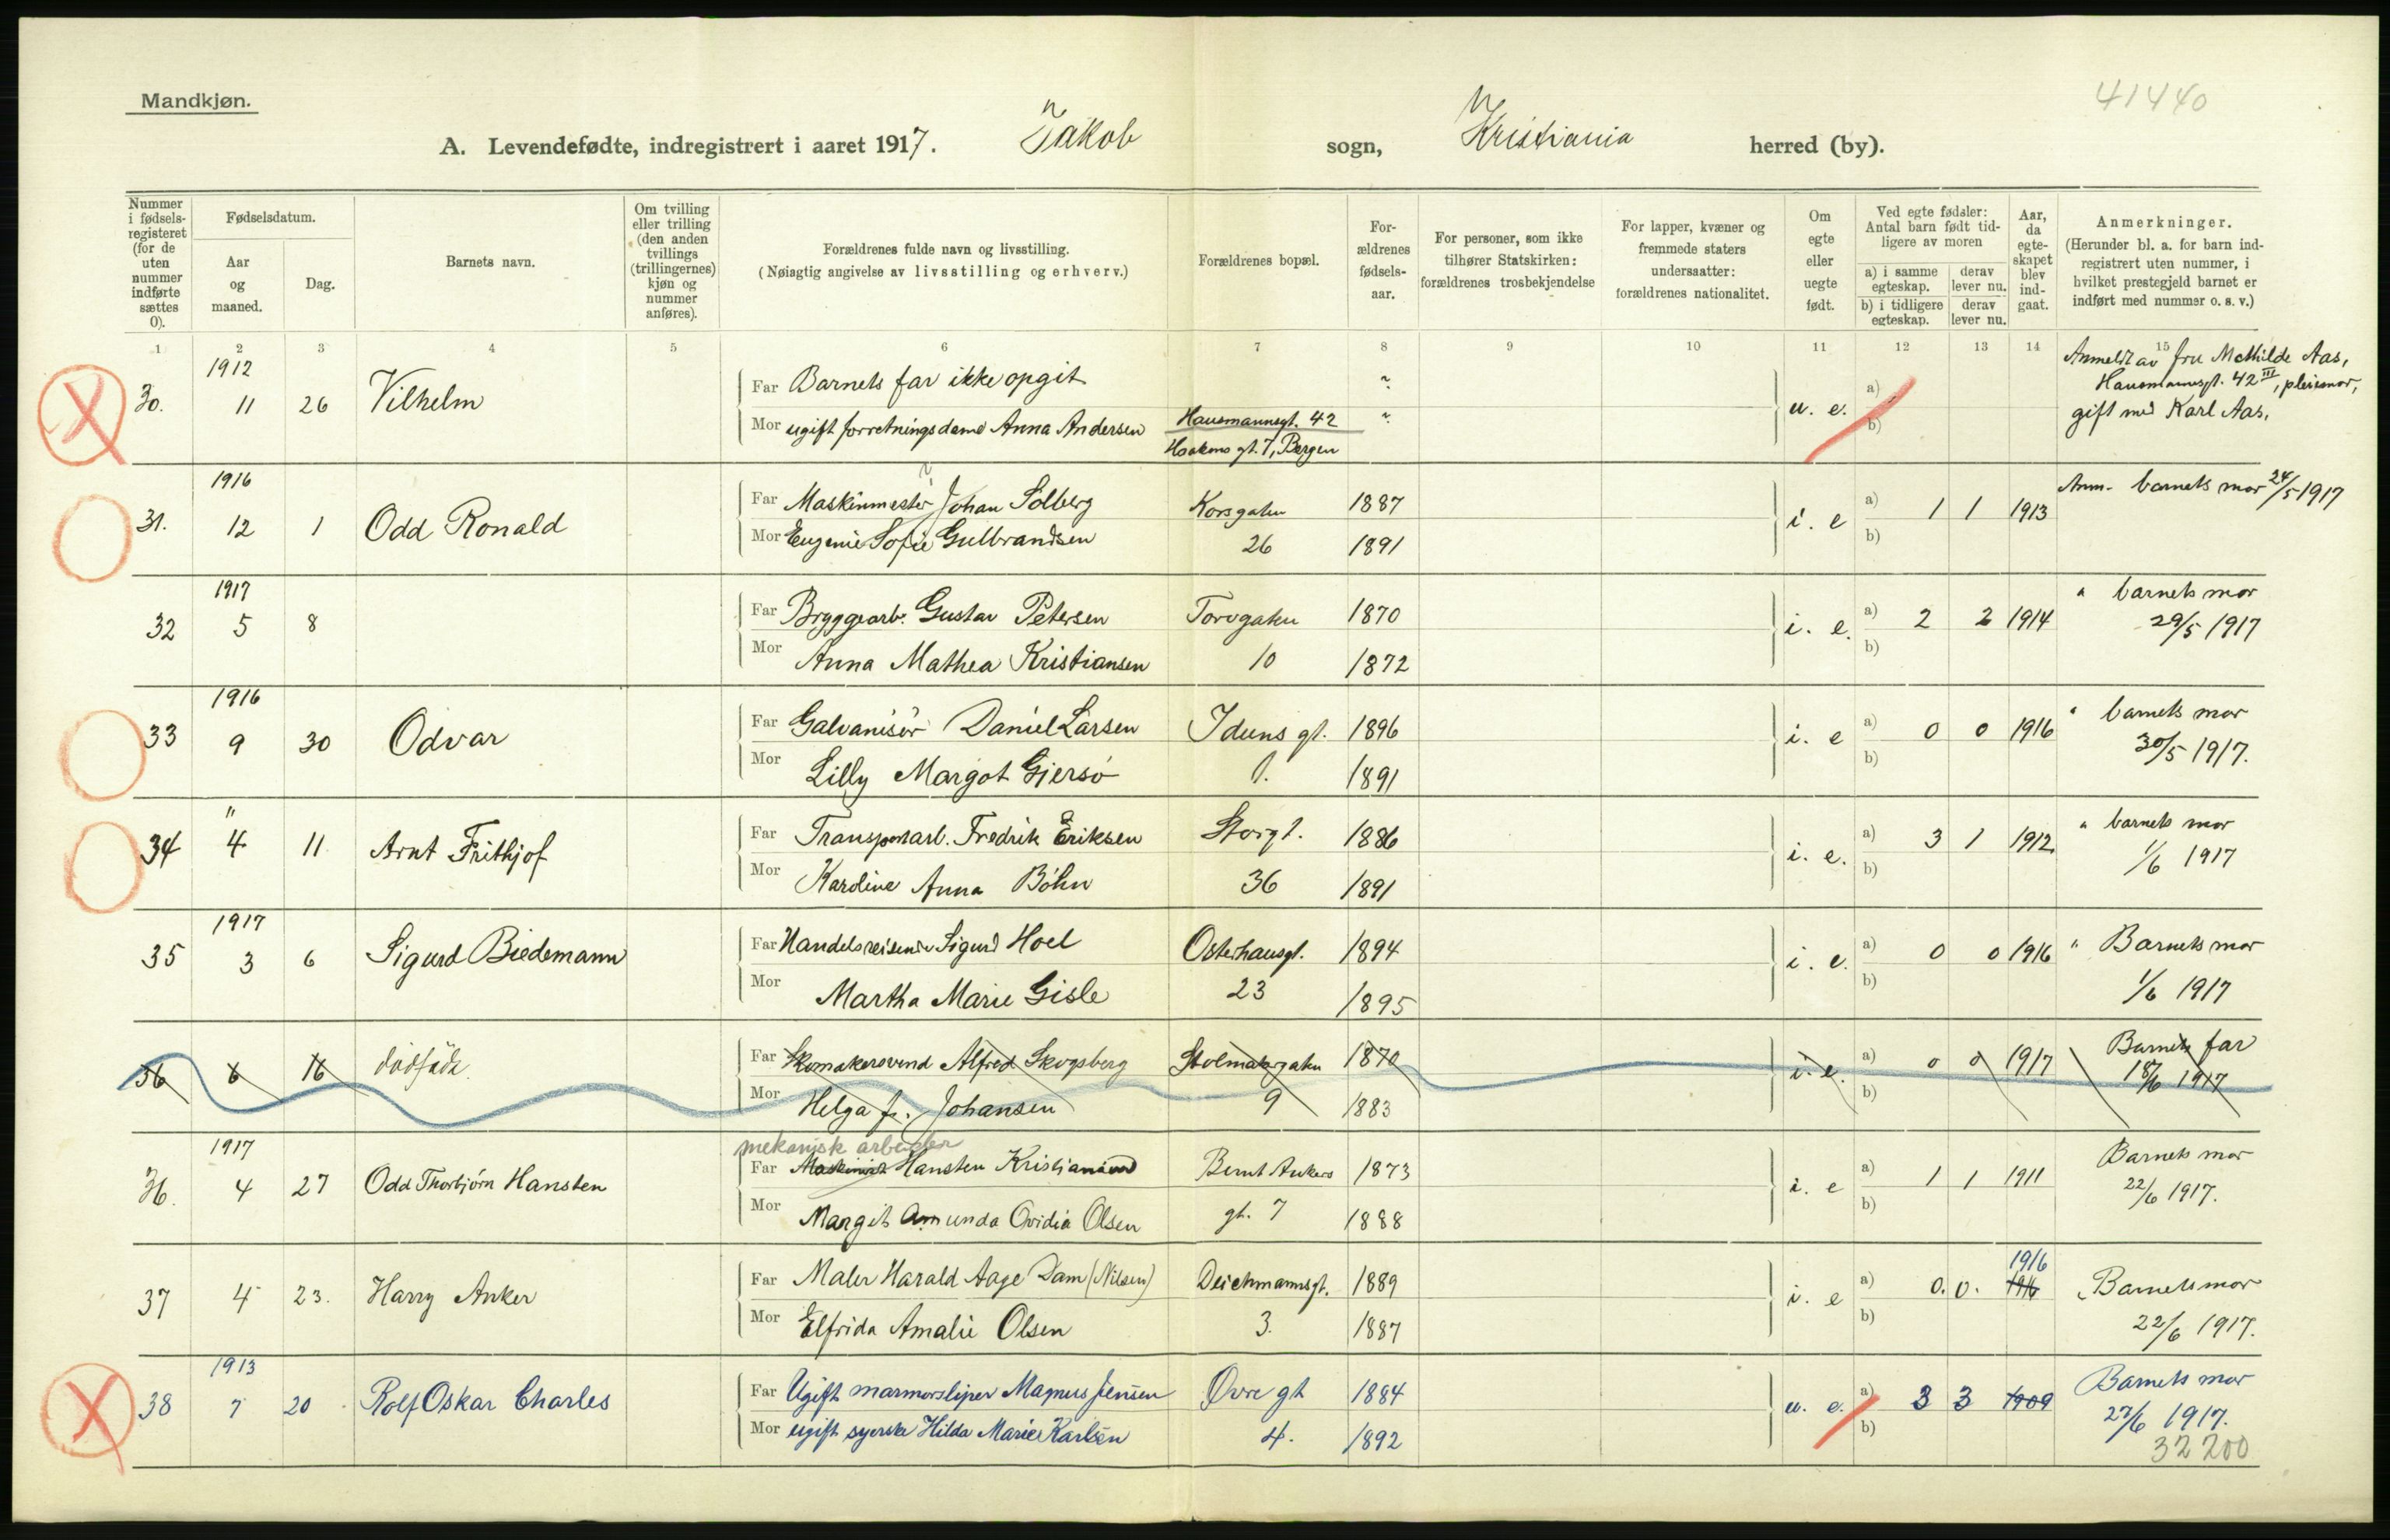 Mandkjøn.
41440
A. Levendefødte, indregistrert i aaret 1917. Jakob sogn, Kristiania herred (by).
Nummer i fødsels-registeret (for de uten nummer indførte sættes 0).
Fødselsdatum.
Aar og maaned.
Dag.
Barnets navn.
Om tvilling eller trilling (den anden tvillings (trillingernes) kjøn og nummer anføres).
Forældrenes fulde navn og livsstilling.
(Nøiagtig angivelse av livsstilling og erhverv.)
Forældrenes bopæl.
For-ældrenes fødsels-aar.
For personer, som ikke tilhører Statskirken: forældrenes trosbekjendelse
For lapper, kvæner og fremmede staters undersaatter: forældrenes nationalitet.
Om egte eller uegte født.
Ved egte fødsler: Antal barn født tid-ligere av moren
a) i samme egteskap.
derav lever nu.
b) i tidligere egteskap.
derav lever nu.
Aar, da egte-skapet blev ind-gaat.
Anmerkninger.
(Herunder bl. a. for barn ind-registrert uten nummer, i hvilket prestegjeld barnet er indført med nummer o. s. v.)
1 2 3 4 5 6 7 8 9 10 11 12 13 14 15
1912
30. 11 26 Vilhelm
Far Barnets far ikke opgit ~
Mor ugift forretningsdame Anna Andersen Hausmannsgt. 42 ~
Haakons gt. 7, Bergen
u. e. a) b)
Anmeldt av fru Mathilde Aas,
Hausmannsgt. 42 III, pleiemor,
gift med Karl Aas.
1916
31. 12 1 Odd Ronald
Far Maskinmester Johan Solberg Korsgaten 1887
Mor Eugenie Sofie Gulbrandsen 26 1891
i. e a) 1 1 1913 b)
Anm. barnets mor 24/5 1917
1917
32 5 8
Far Bryggearb. Gustav Petersen Torvgaten 1870
Mor Anna Mathea Kristiansen 10 1872
i. e. a) 2 2 1914 b)
" barnets mor
29/5 1917
1916
33 9 30 Odvar
Far Galvanisör Daniel Larsen Iduns gt. 1896
Mor Lilly Margot Gjersö 1. 1891
i. e a) 0 0 1916 b)
" barnets mor
30/5 1917.
"
34 4 11 Arnt Frithjof
Far Transportarb. Fredrik Eriksen Storgt. 1886
Mor Karoline Anna Böhn 36 1891
i. e. a) 3 1 1912. b)
" barnets mor
1/6 1917
1917
35 3 6 Sigurd Biedemann
Far Handelsreisende Sigurd Hoel Osterhausgt. 1894
Mor Martha Marie Gisle 23 1895
i. e. a) 0 0 1916 b)
" Barnets mor
1/6 1917
36 6 16 dödföde.
Far Skomakersvend Alfred Skogsberg Stolmakergaten 1870
Mor Helga f. Johansen 9 1883
i. e. a) 0 0 1917 b)
Barnets far
18/6 1917
1917 mekanisk arbeider
36. 4 27 Odd Thorbjörn Hansten
Far Maskinist Hansten Kristiansen Bernt Ankers 1873
Mor Margit Amunda Ovidia Olsen gt. 7 1888
i. e a) 1 1 1911 b)
Barnets mor
22/6 1917.
37 4 23. Harry Anker
Far Maler Harald Aage Dam (Nilsen) Deichmannsgt. 1889
Mor Elfrida Amalie Olsen 3. 1887
i. e a) 0. 0. 1916 1916 b)
" Barnets mor
22/6 1917.
1913
38 7 20 Rolf Oskar Charles
Far Ugift marmorsliper Magnus Jensen Övre gt 1884
Mor ugift syerske Hilda Marie Karlsen 4. 1892
u. e. a) 3 3 1909 b)
Barnets mor
27/6 1917.
32 200